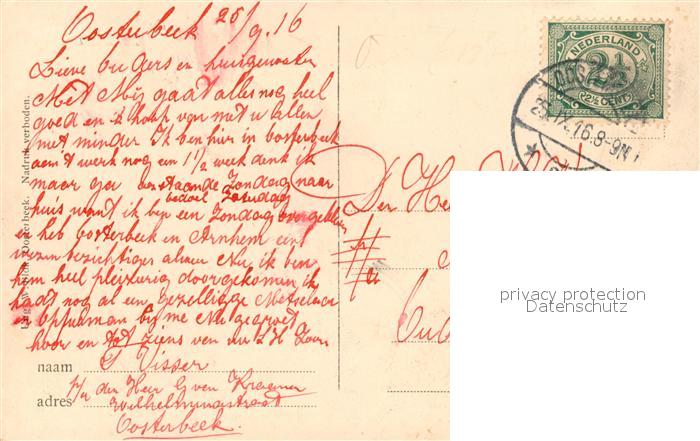 Oosterbeek 25/9.16
Lieve burgers en huisgenooten
Met Mij gaat alles nog heel
goed en ik hoop van met u allen
niet minder Ik ben hier in Oosterbeek
aan t werk nog een 1½ week denk ik
maar ga aanstaande Zondag naar
bedoel Zaturdag
huis want ik ben een Zondag overgebleven
en heb Oosterbeek en Arnhem eens
wezen bezichtigen alleen Nu, ik ben
hem heel pleizierig doorgekomen ik
hadt nog al een gezellige Metselaar
en opperman bij me Nu gegroet
hoor en tot ziens van uw z H Zoon
naam Visser
p/a den Heer G van Kraanen
adres Wilhelminastraat
Oosterbeek
Nadruk verboden.
Oosterbeek.
NEDERLAND
2½
2½ CENT
16.8-9N
Den He
Oud
privacy protection
Datenschutz